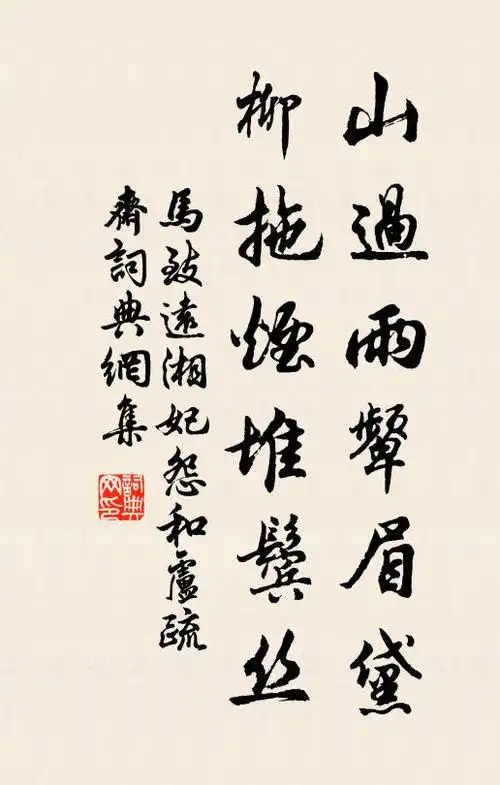 山過雨顰眉黛
柳拖煙堆鬢丝
馬致遠湘妃怨和盧疏
齋詞典網集
詞典网印